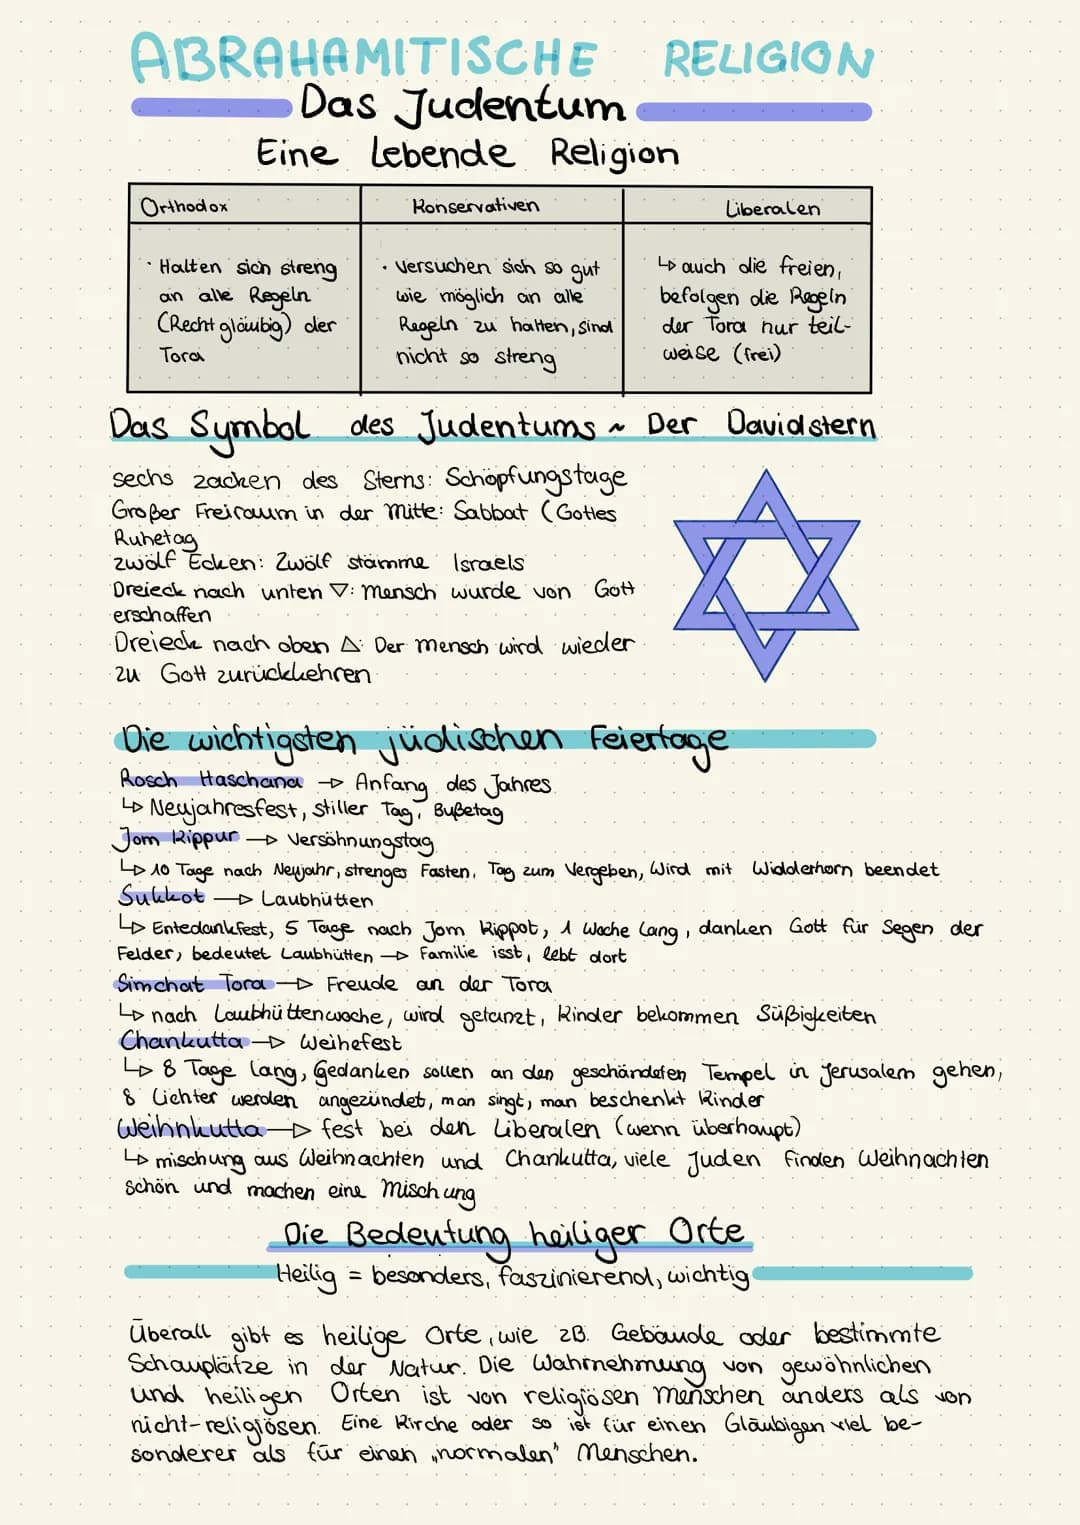 ABRAHAMITISCHE RELIGION
Das Judentum
Eine Lebende Religion
Orthodox
Konservativen
Liberalen
· Halten sich streng
an alle Regeln
(Recht gläubig) der
Tora
· versuchen sich so gut
wie möglich an alle
Regeln zu halten, sind
nicht so streng
↳ auch die freien,
befolgen die Regeln
der Tora nur teil-
weise (frei)
Das Symbol des Judentums ~ Der Davidstern
sechs zacken des Sterns: Schöpfungstage
Großer Freiraum in der Mitte: Sabbat (Gottes
Ruhetag
zwölf Ecken: Zwölf stämme Israels
Dreieck nach unten ▽: Mensch wurde von Gott
erschaffen
Dreieck nach oben △: Der Mensch wird wieder
zu Gott zurückkehren
Die wichtigsten jüdischen Feiertage
Rosch Haschana → Anfang des Jahres
↳ Neujahresfest, stiller Tag, Bußetag
Jom Kippur → Versöhnungstag
↳ 10 Tage nach Neujahr, strenges Fasten, Tag zum Vergeben, Wird mit Widderhorn beendet
Sukkot → Laubhütten
↳ Entedankfest, 5 Tage nach Jom Kippot, 1 Woche lang, danken Gott für Segen der
Felder, bedeutet Laubhütten → Familie isst, lebt dort
Simchat Tora → Freude an der Tora
↳ nach Laubhüttenwoche, wird getanzt, Kinder bekommen Süßigkeiten
Chankutta → Weihefest
↳ 8 Tage lang, Gedanken sollen an den geschändeten Tempel in Jerusalem gehen,
8 Lichter werden angezündet, man singt, man beschenkt Kinder
Weihnkutta → fest bei den Liberalen (wenn überhaupt)
↳ mischung aus Weihnachten und Chankutta, viele Juden finden Weihnachten
schön und machen eine Mischung
Die Bedeutung heiliger Orte
Heilig = besonders, faszinierend, wichtig
Überall gibt es heilige Orte, wie zB. Gebäude oder bestimmte
Schauplätze in der Natur. Die Wahrnehmung von gewöhnlichen
und heiligen Orten ist von religiösen Menschen anders als von
nicht-religiösen. Eine Kirche oder so ist für einen Gläubigen viel be-
sonderer als für einen „normalen" Menschen.